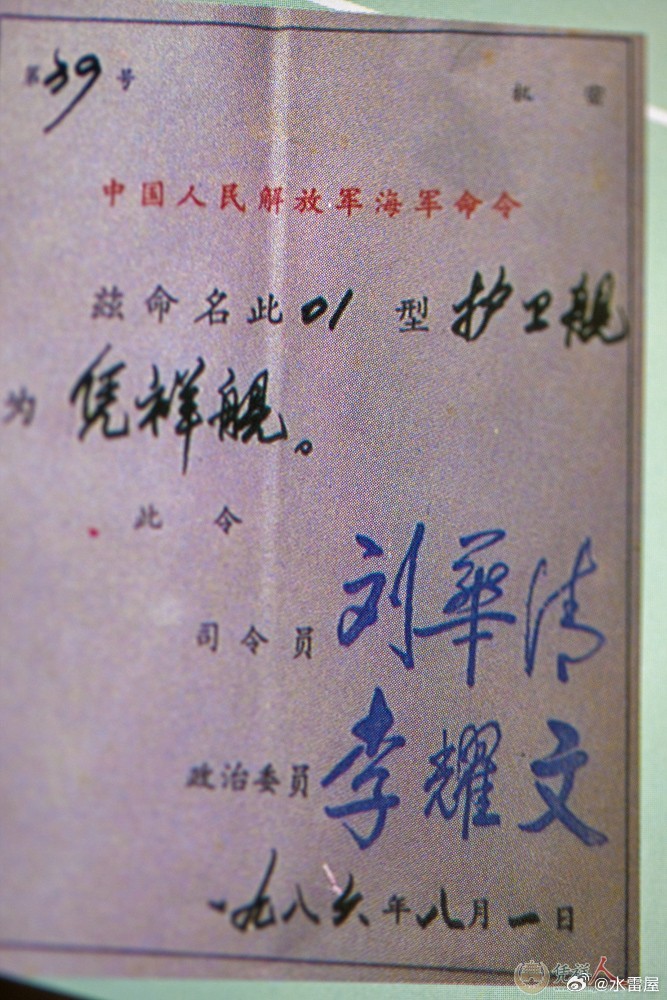 第39号
中国人民解放军海军命令
兹命名此01型护卫舰
为凭祥舰。
此令
司令员 刘華清
政治委员 李耀文
一九八六年八月一日
凭祥人
@水雷屋